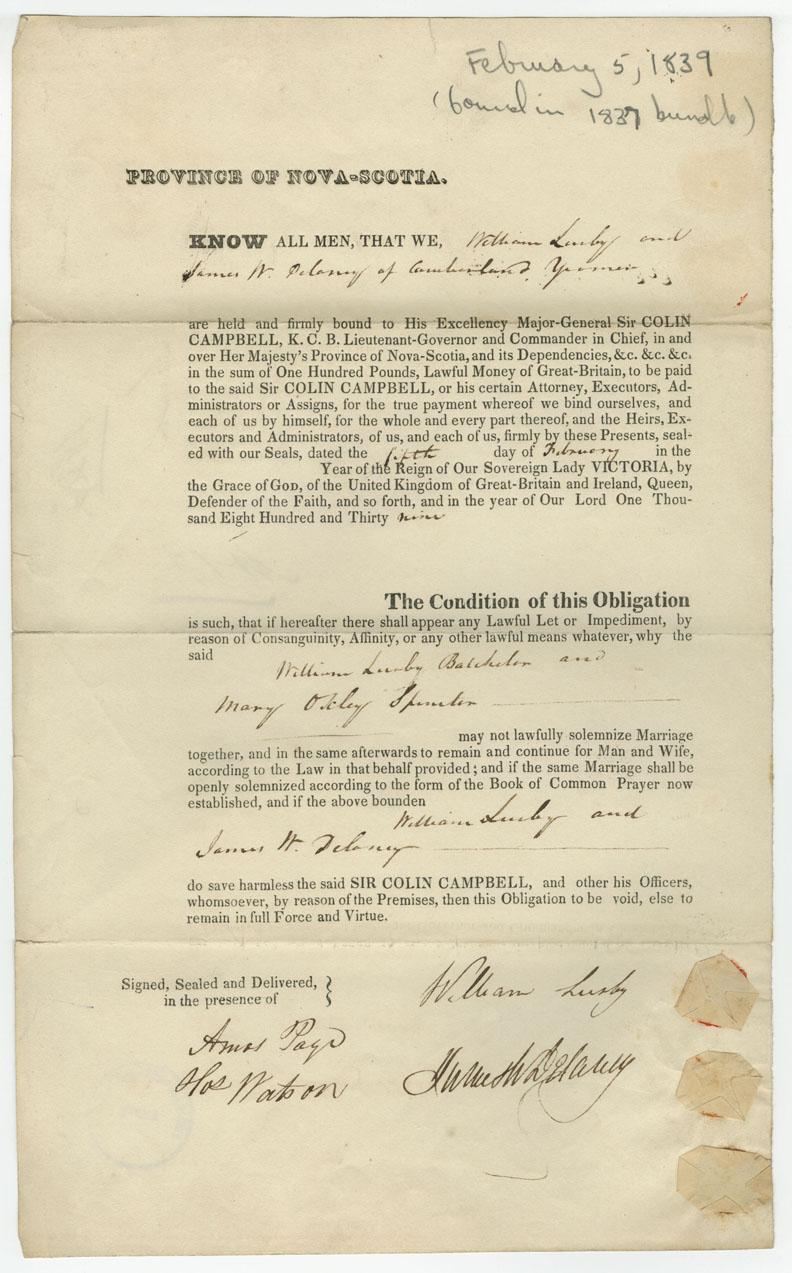 February 5, 1839
(found in 1837 bundle)
PROVINCE OF NOVA-SCOTIA.
KNOW ALL MEN, THAT WE, William Lusby and
James W. Delaney of Cumberland, Yeomen
are held and firmly bound to His Excellency Major-General Sir COLIN
CAMPBELL, K. C. B. Lieutenant-Governor and Commander in Chief, in and
over Her Majesty's Province of Nova-Scotia, and its Dependencies, &c. &c. &c.
in the sum of One Hundred Pounds, Lawful Money of Great-Britain, to be paid
to the said Sir COLIN CAMPBELL, or his certain Attorney, Executors, Ad-
ministrators or Assigns, for the true payment whereof we bind ourselves, and
each of us by himself, for the whole and every part thereof, and the Heirs, Ex-
ecutors and Administrators, of us, and each of us, firmly by these Presents, seal-
ed with our Seals, dated the fifth day of February in the
Year of the Reign of Our Sovereign Lady VICTORIA, by
the Grace of GOD, of the United Kingdom of Great-Britain and Ireland, Queen,
Defender of the Faith, and so forth, and in the year of Our Lord One Thou-
sand Eight Hundred and Thirty nine
The Condition of this Obligation
is such, that if hereafter there shall appear any Lawful Let or Impediment, by
reason of Consanguinity, Affinity, or any other lawful means whatever, why the
said William Lusby Batchelor and
Mary Oxley Spinster
may not lawfully solemnize Marriage
together, and in the same afterwards to remain and continue for Man and Wife,
according to the Law in that behalf provided; and if the same Marriage shall be
openly solemnized according to the form of the Book of Common Prayer now
established, and if the above bounden William Lusby and
James W. Delaney
do save harmless the said SIR COLIN CAMPBELL, and other his Officers,
whomsoever, by reason of the Premises, then this Obligation to be void, else to
remain in full Force and Virtue.
Signed, Sealed and Delivered, }
in the presence of
William Lusby
Amos Page
James W Delaney
Watson